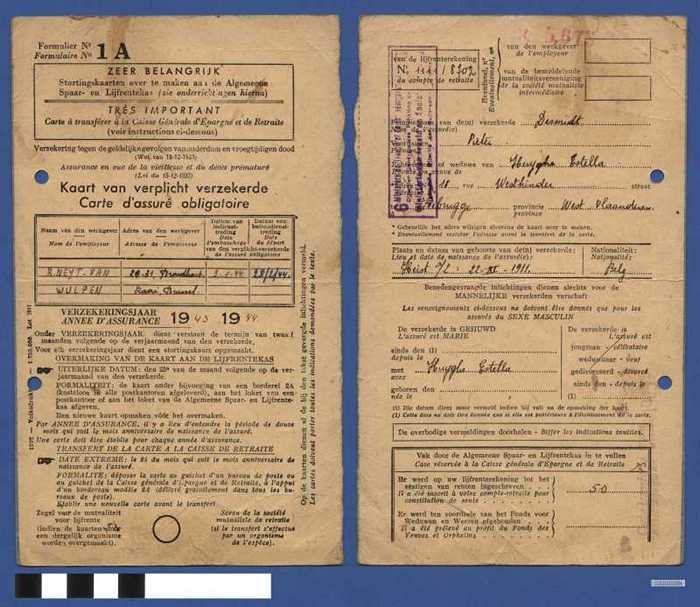 Formulier Nr
Formulaire No 1A
ZEER BELANGRIJK
Stortingskaarten over te maken aan de Algemeene
Spaar- en Lijfrentekas (zie onderrichtingen hierna)
TRÈS IMPORTANT
Carte à transférer à la Caisse Générale d'Epargne et de Retraite
(voir instructions ci-dessous)
Verzekering tegen de geldelijke gevolgen van ouderdom en vroegtijdigen dood
(Wet van 18-12-1937)
Assurance en vue de la vieillesse et du décès prématuré
(Loi du 18-12-1937)
Kaart van verplicht verzekerde
Carte d'assuré obligatoire
Naam van den werkgever
Nom de l'employeur
Adres van den werkgever
Adresse de l'employeur
B. NEYT-VAN
WULPEN
VERZEKERINGSJAAR
ANNEE D'ASSURANCE 1943 1944
Onder VERZEKERINGSJAAR dient verstaan de termijn van twaalf
maanden volgende op de verjaarmaand van den verzekerde.
Voor elk verzekeringsjaar dient een stortingskaart opgemaakt.
OVERMAKING VAN DE KAART AAN DE LIJFRENTEKAS
UITERLIJKE DATUM: den 25n van de maand volgende op de ver-
jaarmaand van den verzekerde.
FORMALITEIT: de kaart onder bijvoeging van een borderel 2A
(kosteloos in alle postkantoren afgeleverd), aan het loket van een
postkantoor of aan het loket van de Algemeene Spaar- en Lijfrente-
kas afgeven.
Een nieuwe kaart opmaken vóór het overmaken.
Par ANNEE D'ASSURANCE, il y a lieu d'entendre la période de douze
mois qui suit le mois anniversaire de naissance de l'assuré.
Une carte doit être établie pour chaque année d'assurance.
TRANSFERT DE LA CARTE A LA CAISSE DE RETRAITE
DATE EXTREME: le 25 du mois qui suit le mois anniversaire
de naissance de l'assuré.
FORMALITE: déposer la carte au guichet d'un bureau de poste ou
au guichet de la Caisse générale d'Epargne et de Retraite, à l'appui
d'un bordereau modèle 2A (délivré gratuitement dans tous les bu-
reaux de poste).
Etablir une nouvelle carte avant le transfert.
Zegel voor de mutualiteit
voor lijfrente
(indien de kaarten door
een dergelijk organisme
worden overgemaakt).
Sceau de la société
mutualiste de retraite
(si le transfert s'effectue
par un organisme
de l'espèce).
van de lijfrenterekening
No
du compte de retraite
van den werkgever
de l'employeur
van de bemoeiende
mutualiteitsvereeniging
de la société mutualiste
intermédiaire
Desmedt
Pieter
Huyghe Estella
18 rue Westhinder straat
Zeebrugge provincie West Vlaanderen
province
* Gebeurlijk het adres wijzigen alvorens de kaart over te maken.
* Eventuellement rectifier l'adresse avant le transfert de la carte.
Plaats en datum van geboorte van den(de) verzekerde:
Lieu et date de naissance de l'assuré(e):
Nationaliteit:
Nationalité:
Heist 22-XI-1911. Belg
Benedengevraagde inlichtingen dienen slechts voor de
MANNELIJKE verzekerden verschaft
Les renseignements ci-dessous ne doivent être donnés que pour les
assurés du SEXE MASCULIN
De verzekerde is GEHUWD
L'assuré est MARIE
De verzekerde is:
L'assuré est
jongman - célibataire
weduwnaar - veuf
gedivorceerd - divorcé
sinds den (1)
depuis le
sinds den (1)
depuis le
met
avec Huyghe Estella
geboren den
née le
(1) Dit dient door meer vermeld indien hij valt na de opmaking der kaart.
(1) Cette date ne doit être donnée que si elle est postérieure à l'établissement de la carte.
De overbodige vermeldingen doorhalen - Biffer les indications inutiles.
Vak door de Algemeene Spaar- en Lijfrentekas in te vullen
Case réservée à la Caisse Générale d'Epargne et de Retraite
Er werd op uw lijfrenterekening tot het
vestigen van renten ingeschreven
Il a été inscrit à votre compte-retraite pour
constitution de rente
50
Er werd ten voordeele van het Fonds voor
Weduwen en Weezen afgehouden
Il a été prélevé au profit du Fonds des
Veuves et Orphelins